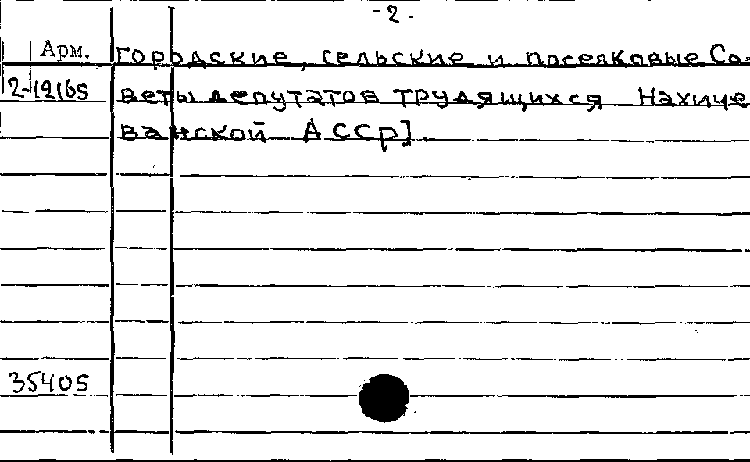 -2.
Арм. городские, сельские и поселковые Со-
2-12165 веты депутатов трудящихся Нахиче
ванской АССР].
35405